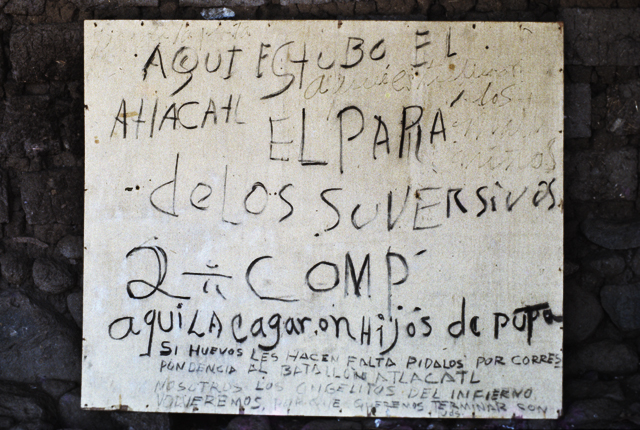 AQUI EStUBO EL
AtlACAtL
EL PAPIA
de LOS SUVERSivos.
2 COMP
aqui LA Cagaron Hijos de puta
SI HUEVOS LES HACEN FALTA PIDALOS POR CORRES
PONDENCIA AL BATALLON ATLACATL
NOSOTROS LOS ANGELITOS DEL INFIERNO
VOLVEREMOS, PORQUE QUEREMOS TERMINAR CON